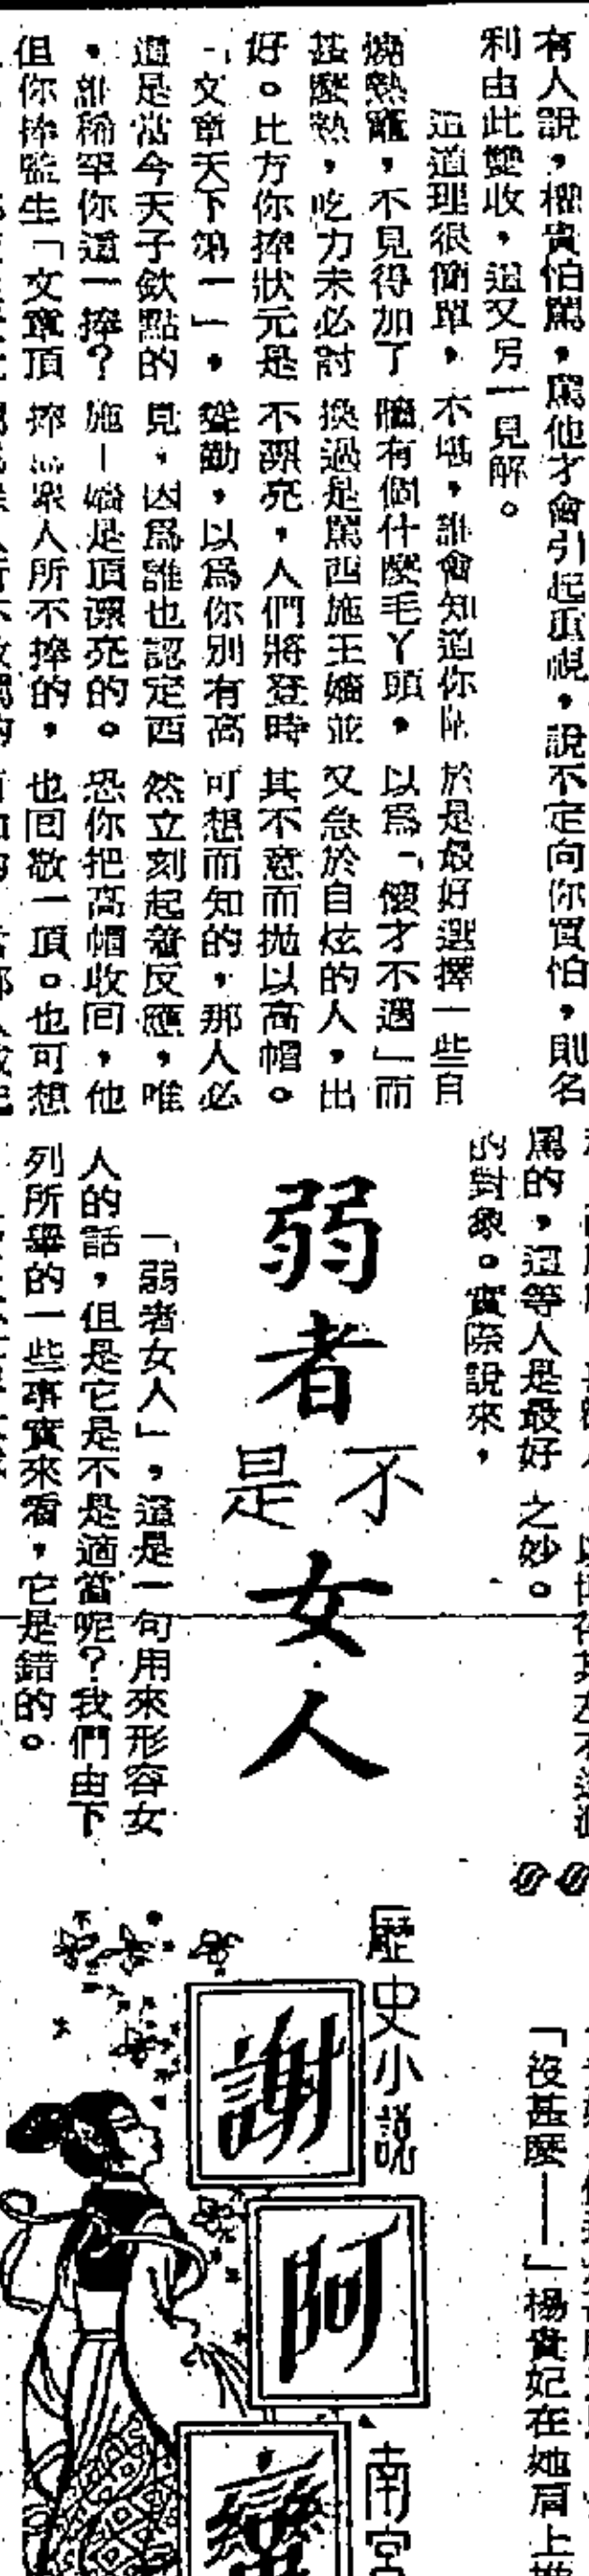 有人說，權貴怕罵，罵他才會引起重視，說不定向你買怕，則名
利由此雙收，這又另一見解。
這道理很簡單，
燒熱竈，不見得加了
甚麼熱，吃力未必討
好。比方你捧狀元是
「文章天下第一」，
這是當今天子欽點的
，誰稀罕你這一捧？
但你捧監生「文章頂
不堪，誰會知道你
牆有個什麼毛丫頭，
換過是罵西施王嬙並
不漂亮，人們將登時
聳動，以為你別有高
見，因為誰也認定西
施—嬙是頂漂亮的。
捧為眾人所不捧的，
於是最好選擇一些自
以爲「懷才不遇」而
又急於自炫的人，出
其不意而拋以高帽。
可想而知的，那人必
然立刻起着反應，唯
恐你把高帽收回，他
也回敬一頂。也可想
罵的，這等人是最好
的對象。實際說來，
之妙。
弱者不是女人
「弱者女人」，這是一句用來形容女
人的話，但是它是不是適當呢？我們由下
列所舉的一些事實來看，它是錯的。
「沒甚麼——」楊貴妃在她肩上
歷史小說
謝阿蠻
南宮